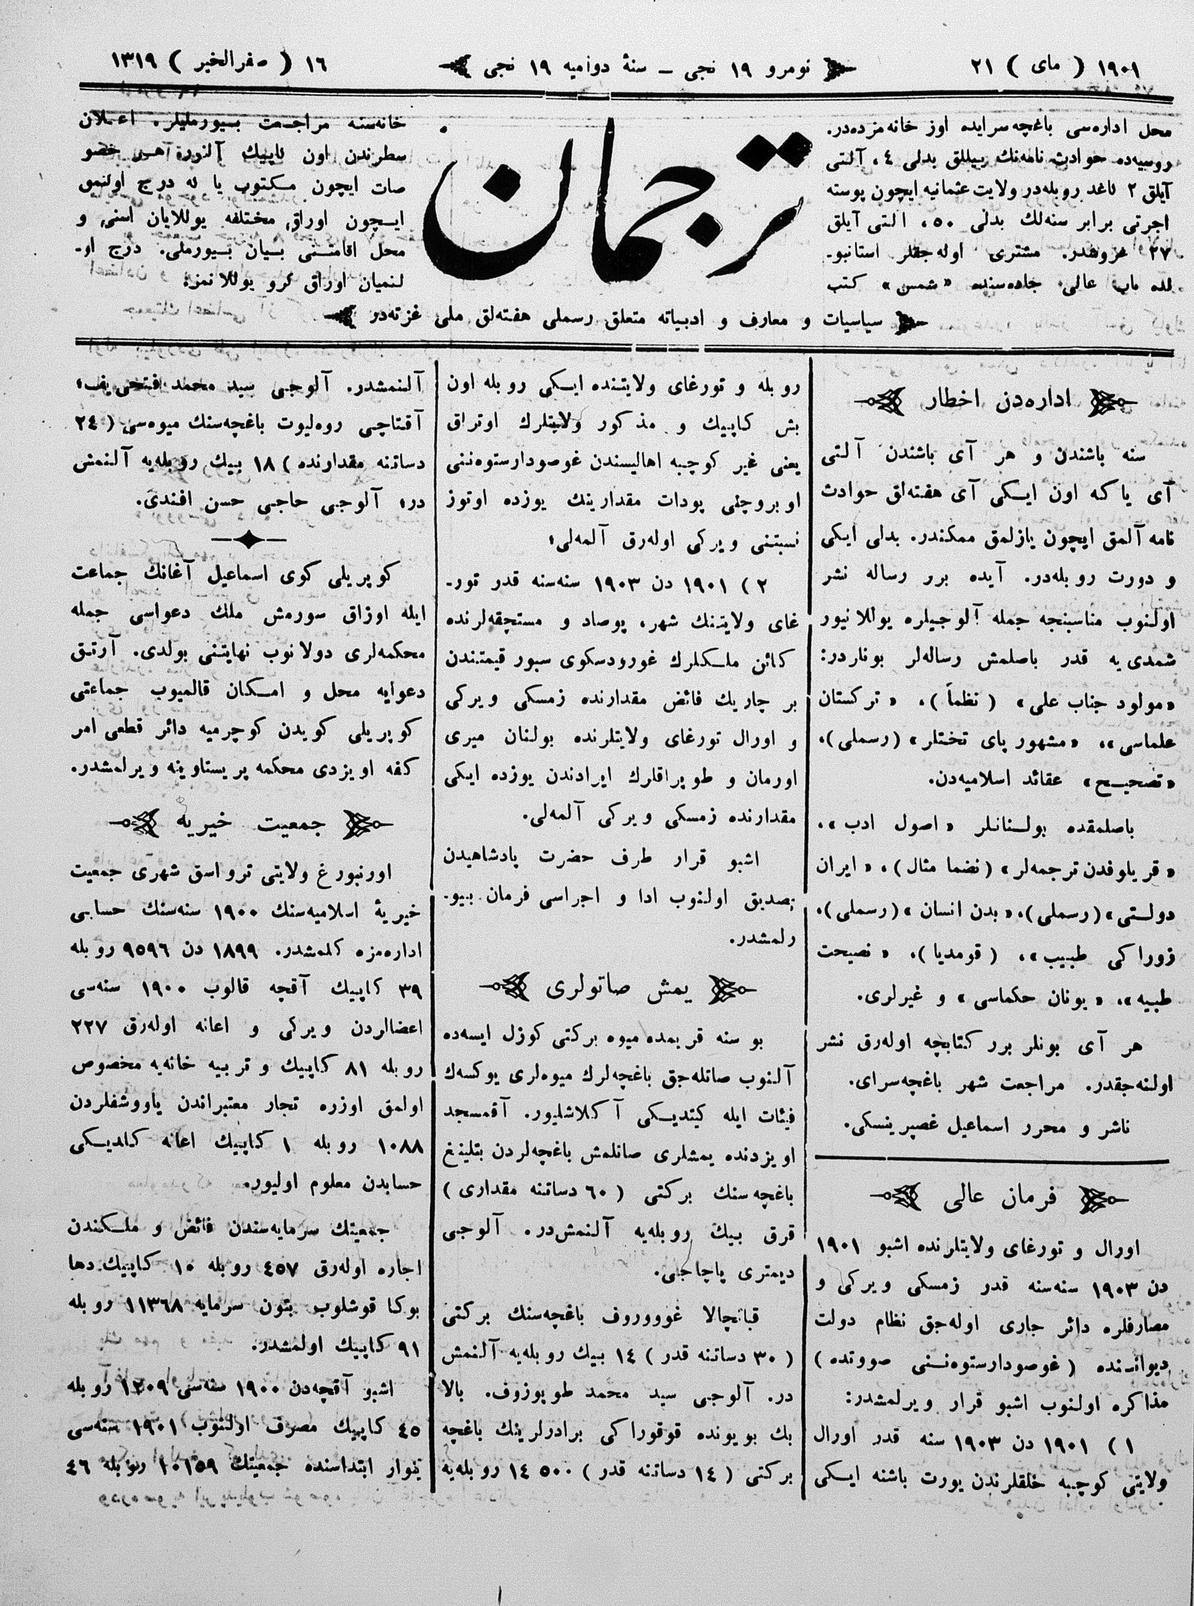 ١٩٠١ ( مای ) ٢١
نومرو ١٩ نجی ــ سنهٔ دوامیه ١٩ نجی
١٦ ( صفرالخیر ) ١٣١٩
محل اداره‌سی باغچه‌سرایده اوز خانه‌مزده‌در.
روسیه‌ده حوادث نامه‌نك ییللق بدلی ٤، آلتی
آیلق ٢ كاغد روبله‌در ولایت عثمانیه ایچون پوسته
اجرتی برابر سنه‌لك بدلی ٥٠، التی آیلق
٢٧ غروشدر. مشتری اوله‌جقلر استانبو۔
لده باب عالی جاده‌سنده «شمس» كتب
ترجمان
خانه‌سنه مراجعت بیورملیلر. اعلان
سطرندن اون كاپیك آلنور.
صات ایچون مكتوب یا له درج اولنمق
ایچون اوراق مختلفه یوللایان اسنی و
محل اقامتنی بیان بیورملی. درج او۔
لنمیان اوراق گرو یوللانمز.
سیاسیات و معارف و ادبیاته متعلق رسملی هفته‌لق ملی غزته‌در
اداره‌دن اخطار
سنه باشندن و هر آی باشندن آلتی
آی یاكه اون ایكی آی هفته‌لق حوادث
نامه آلمق ایچون یازلمق ممكندر. بدلی ایكی
و دورت روبله‌در. آیده برر رساله نشر
اولنوب مناسبنجه جمله آلوجیلره یوللانیور
شمدی‌یه قدر باصلمش رساله‌لر بونلردر:
«مولود جناب علی» (نظماً)، «تركستان
علماسی»، «مشهور پای تختلر» (رسملی)،
«تصحیح» عقائد اسلامیه‌دن.
باصلمقده بولنانلر «اصول ادب»،
«قریلوفدن ترجمه‌لر» (نضما مثال)، «ایران
دولتی» (رسملی)، «بدن انسان» (رسملی)،
زوراكی طبیب»، (قومدیا)، «نصیحت
طبیه»، «یونان حكماسی» و غیرلری.
هر آی بونلر برر كتابچه اوله‌رق نشر
اولنه‌جقدر. مراجعت شهر باغچه‌سرای.
ناشر و محرر اسماعیل غصپرینسكی.
فرمان عالی
اورال و تورغای ولایتلرنده اشبو ١٩٠١
دن ١٩٠٣ سنه‌سنه قدر زمسكی ویركی و
مصارفلره دائر جاری اوله‌جق نظام دولت
دیواننده (غوصودارستوه‌ننی صووتده)
مذاكره اولنوب اشبو قرار ویرلمشدر:
١) ١٩٠١ دن ١٩٠٣ سنه قدر اورال
ولایتی كوچبه خلقلرندن یورت باشنه ایكی
روبله و تورغای ولایتنده ایكی روبله اون
بش كاپیك و مذكور ولایتلرك اوتراق
یعنی غیر كوچبه اهالیسندن غوصودارستوه‌ننی
اوبروچنی پودات مقدارینك یوزده اوتوز
نسبتنی ویركی اوله‌رق آلمه‌لی؛
٢) ١٩٠١ دن ١٩٠٣ سنه‌سنه قدر تور۔
غای ولایتنك شهر، پوصاد و مستچقه‌لرنده
كائن ملكلرك غورودسكوی سبور قیمتندن
بر چاریك فائض مقدارنده زمسكی ویركی
و اورال تورغای ولایتلرنده بولنان میری
اورمان و طوپراقلرك ایرادندن یوزده ایكی
مقدارنده زمسكی ویركی آلمه‌لی.
اشبو قرار طرف حضرت پادشاهیدن
تصدیق اولنوب ادا و اجراسی فرمان بیو۔
رلمشدر.
یمش صاتولری
بو سنه قریمده میوه بركتی كوزل ایسه‌ده
آلنوب صاتله‌جق باغچه‌لرك میوه‌لری یوكسەك
فیئات ایله كیتدیكی آكلاشلیور. آقمسجد
اویزدنده یمشلری صاتلمش باغچه‌لردن بتلینغ
باغچه‌سنك بركتی (٦٠ دساتنه مقداری)
قرق بیك روبله‌یه آلنمش‌در. آلوجی
دیمتری پاچاجی.
قباچالا غوووروف باغچه‌سنك بركتی
(٣٠ دساتنه قدر) ١٤ بیك روبله‌یه آلنمش
در. آلوجی سید محمد طوپوزوف. بالا
بك بویونده قوقوراكی برادرلرینك باغچه
بركتی (١٤ دساتنه قدر) ١٤٥٠٠ روبله‌یه
آلنمشدر. آلوجی سید محمد فتحی‌یف؛
آقتاچی روه‌لیوت باغچه‌سنك میوه‌سی (٢٤
دساتنه مقدارنده) ١٨ بیك روبله‌یه آلنمش
در؛ آلوجی حاجی حسن افندی.
كوپریلی كوی اسماعیل آغانك جماعت
ایله اوزاق سورمش ملك دعواسی جمله
محكمه‌لری دولانوب نهایتنی بولدی. آرتق
دعوایه محل و امكان قالمیوب جماعتی
كوپریلی كویدن كوچرمیه دائر قطعی امر
كفه اویزدی محكمه پریستاوینه ویرلمشدر.
جمعیت خیریه
اورنبورغ ولایتی ترواسق شهری جمعیت
خیریهٔ اسلامیه‌سنك ١٩٠٠ سنه‌سنك حسابی
اداره‌مزه كلمشدر. ١٨٩٩ دن ٩٥٩٦ روبله
٣٩ كاپیك آقچه قالوب ١٩٠٠ سنه‌سی
اعضالردن ویركی و اعانه اوله‌رق ٢٢٧
روبله ٨١ كاپیك و تربیه خانه‌یه مخصوص
اولمق اوزره تجار معتبراندن یاووشفلردن
١٠٨٨ روبله ١ كاپیك اعانه كلدیكی
حسابدن معلوم اولیور.
جمعیتك سرمایه‌سندن فائض و ملكندن
اجاره اوله‌رق ٤٥٧ روبله ١٠ كاپیك دها
بوكا قوشلوب بتون سرمایه ١١٣٦٨ روبله
٩١ كاپیك اولمشدر.
اشبو آقچه‌دن ١٩٠٠ سنه‌سی ١٢٠٩ روبله
٤٥ كاپیك مصرف اولنوب ١٩٠١ سنه‌سی
ینوار ابتداسنده جمعیتك ١٠١٥٩ روبله ٤٦